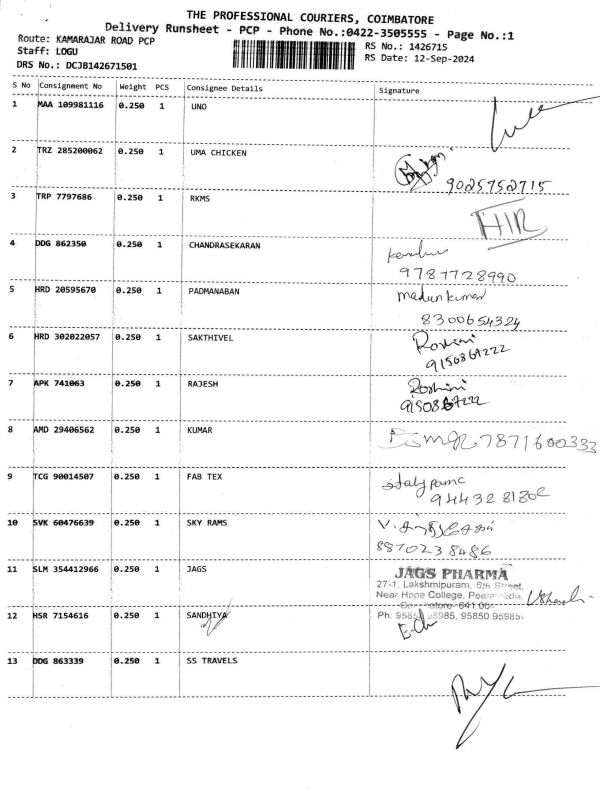 THE PROFESSIONAL COURIERS, COIMBATORE
Delivery Runsheet - PCP - Phone No.:0422-3505555 - Page No.:1
Route: KAMARAJAR ROAD PCP
RS No.: 1426715
Staff: LOGU
RS Date: 12-Sep-2024
DRS No.: DCJB142671501
S No Consignment No Weight PCS Consignee Details Signature
1 MAA 109981116 0.250 1 UNO
2 TRZ 285200062 0.250 1 UMA CHICKEN
9025752715
3 TRP 7797686 0.250 1 RKMS
4 DDG 862350 0.250 1 CHANDRASEKARAN
9787728990
5 HRD 20595670 0.250 1 PADMANABAN
madunkumar
8300654324
6 HRD 302022057 0.250 1 SAKTHIVEL
Roshini
9150867222
7 APK 741063 0.250 1 RAJESH
Roshini
9150867222
8 AMD 29406562 0.250 1 KUMAR
7871600333
9 TCG 90014507 0.250 1 FAB TEX
10 SVK 60476639 0.250 1 SKY RAMS
8870238486
11 SLM 354412966 0.250 1 JAGS
JAGS PHARMA
27-1, Lakshmipuram, 6th Street,
Near Hope College,
12 HSR 7154616 0.250 1 SANDHIYA
95850 95985
13 DDG 863339 0.250 1 SS TRAVELS